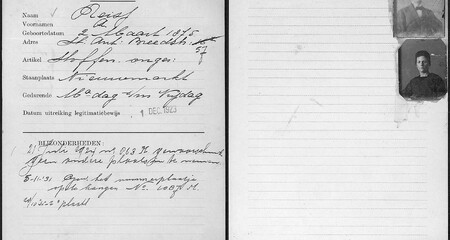 Naam Reiss
Voornamen A.
Geboortedatum 2 Maart 1875
Adres St. Ant: Breedstr: 57
Artikel Stoffen enge:
Standplaats Nieuwemarkt
Gedurende Ma dag t/m Vrijdag
Datum uitreiking legitimatiebewijs 1 DEC. 1923
BIJZONDERHEDEN:
21 Juli 1924 no 063 M gewaarschuwd
geen andere plaatsen te nemen
5-11-'31 het nummerplaatje
op te hangen No. 1007 M.